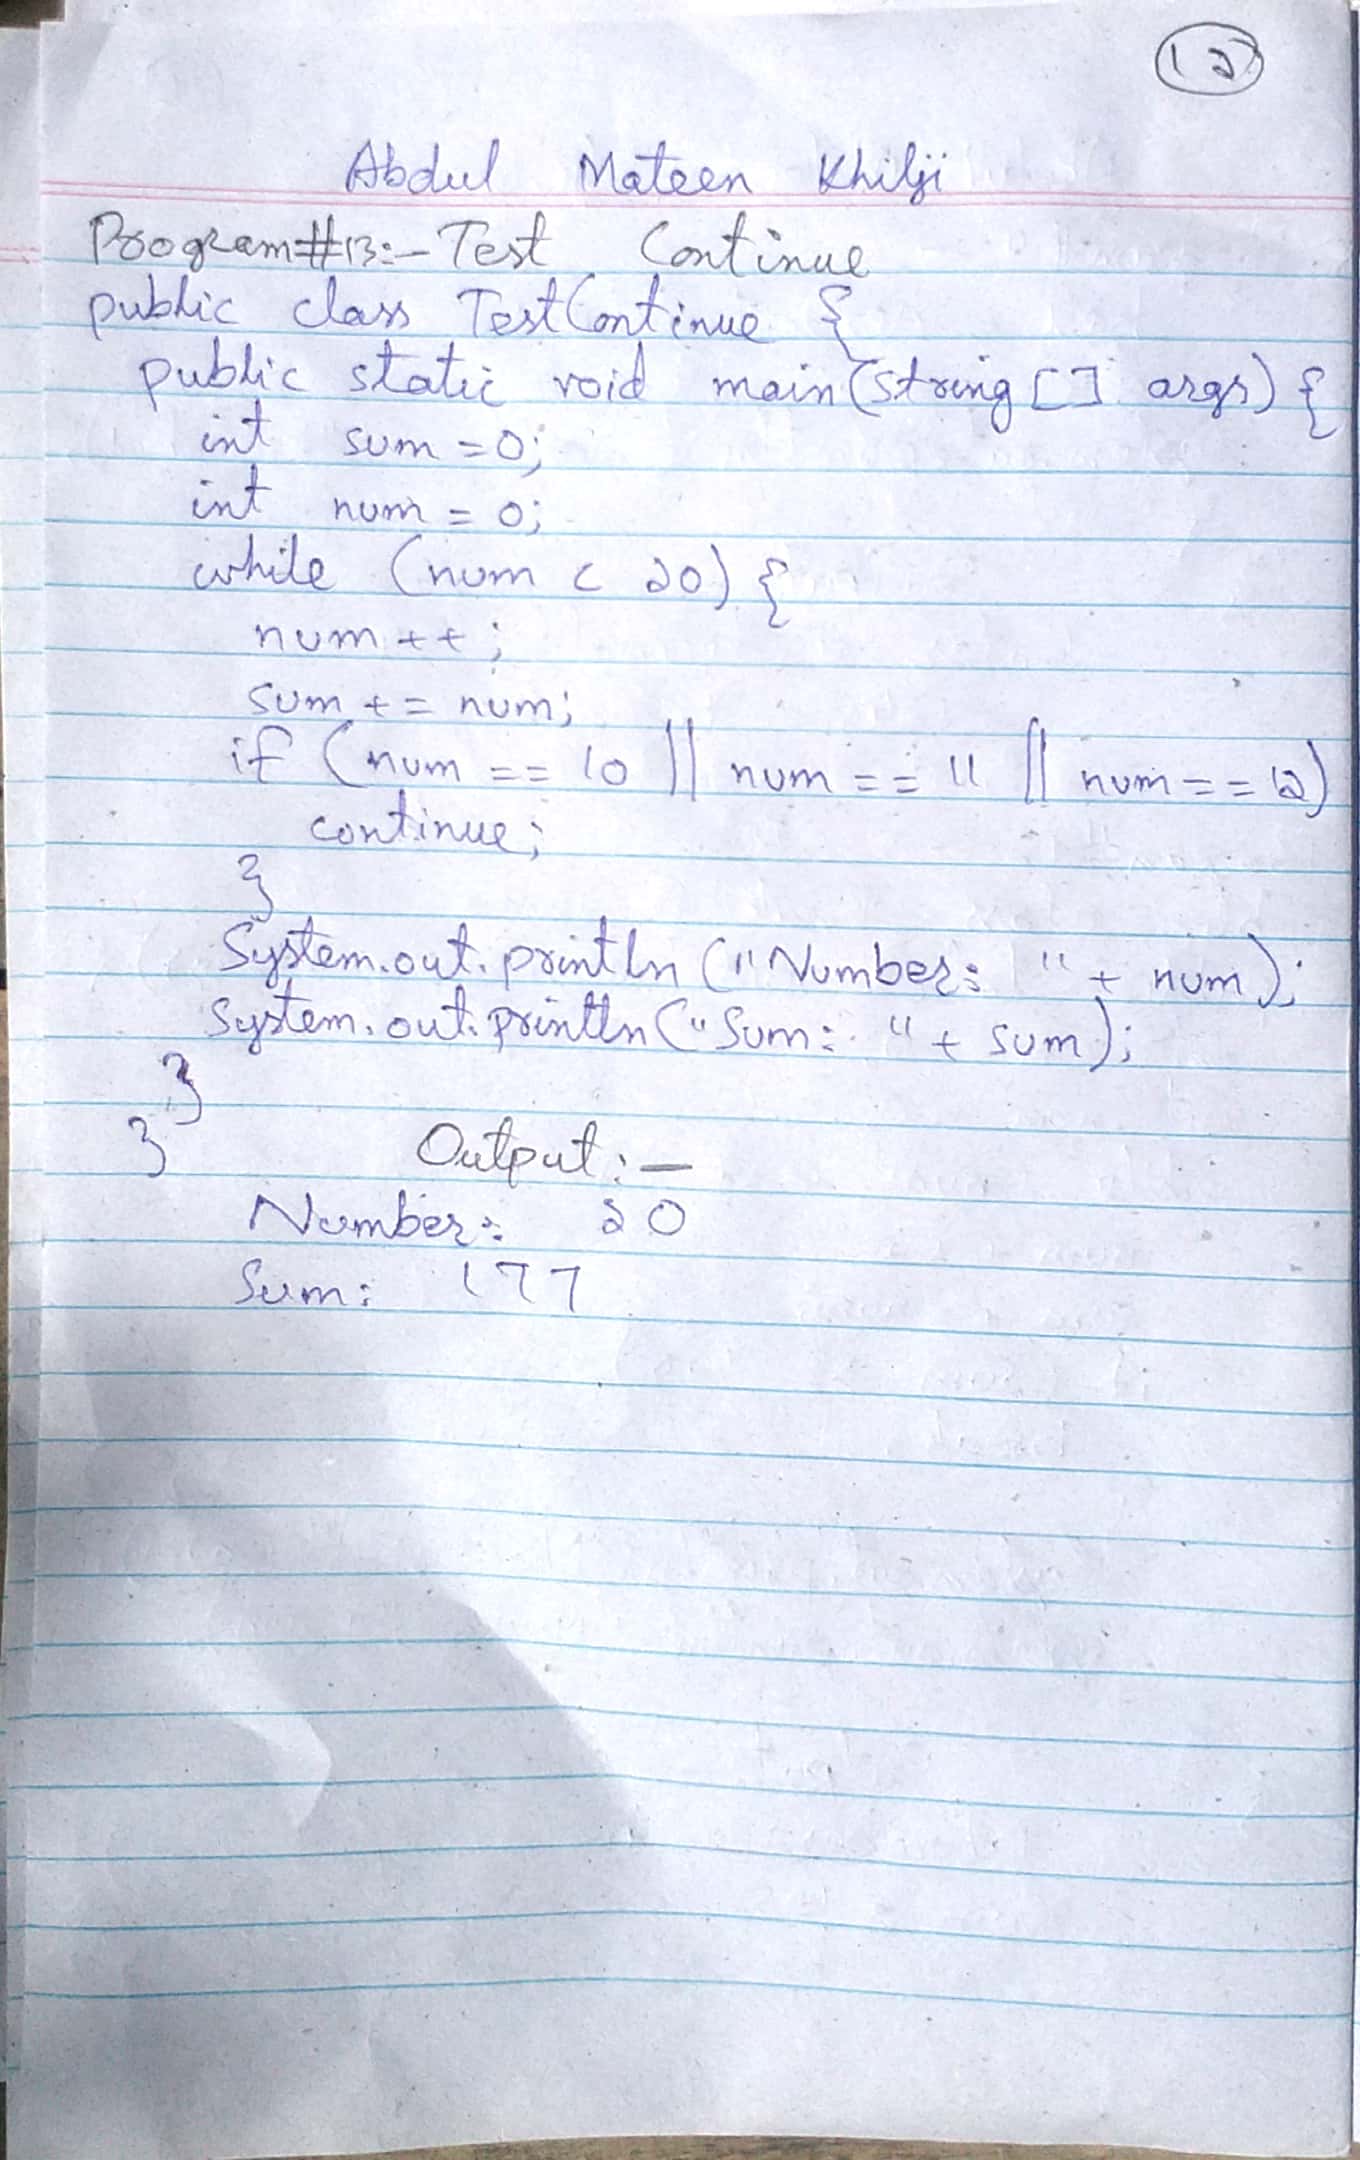 12
Abdul Mateen Khilji
Program#13:- Test Continue
public class TestContinue {
public static void main(string [] args) {
int sum = 0;
int num = 0;
while (num < 20) {
num ++;
sum += num;
if (num == 10 || num == 11 || num == 12)
continue;
}
System.out.println ("Number: " + num);
System.out.println ("Sum: " + sum);
}
}
Output :-
Number: 20
Sum: 177